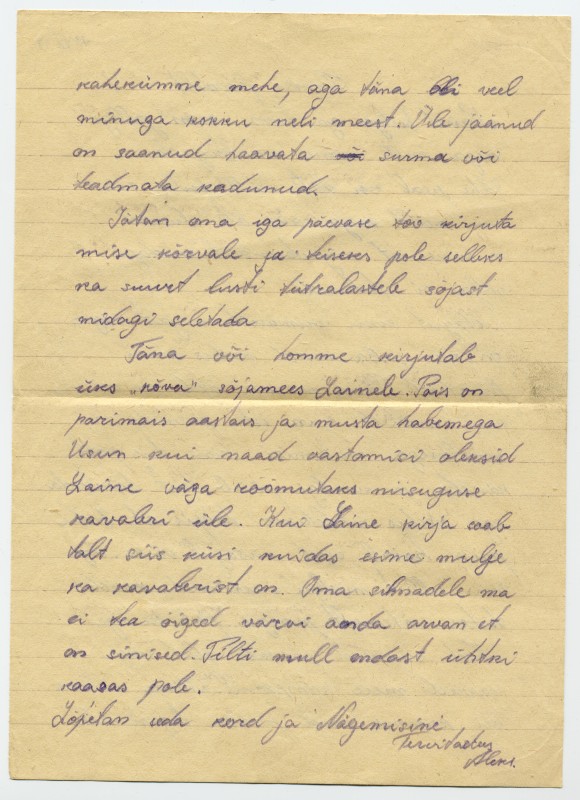 kahekümne mehe, aga täna oli veel
minuga kokku neli meest. Üle jäänud
on saanud haavata või surma või
teadmata kadunud.
Jätan oma iga päevase töö kirjuta
mise kõrvale ja teiseks pole selleks
ka suuret lusti tütralastele sõjast
midagi seletada
Täna või homme kirjutab
üks „kõva" sõjamees Lainele. Pois on
parimais aastais ja musta habemega
Usun kui naad vastamici oleksid
Laine väga rõõmutaks niisuguse
kavaleri üle. Kui Laine kirja saab
talt siis küsi kuidas esime mulje
ka kavalerist on. Oma sihnadele ma
ei tea õiged värvi anda arvan et
on sinised. Pilti mull endast ühtki
kaasas pole.
Lõpetan seda kord ja Nägemisini
Tervitades
Aleks.